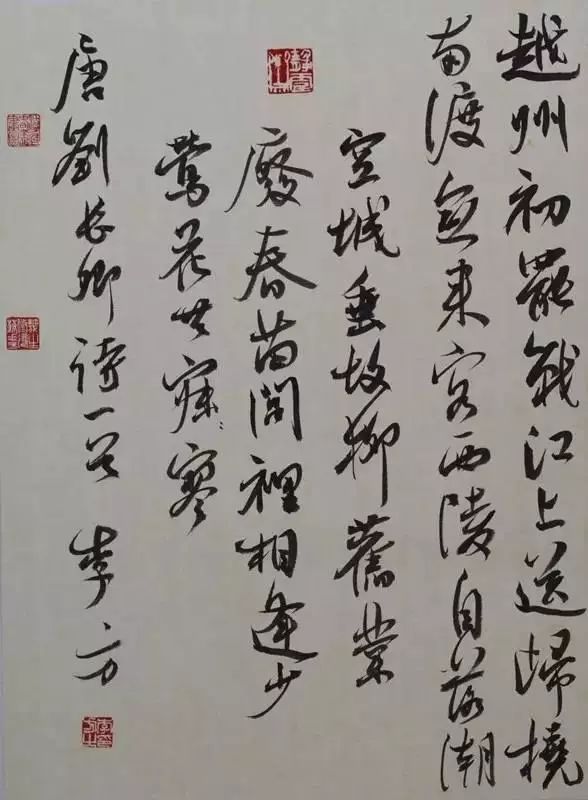 越州初罷戰江上送歸橈
南渡無來客西陵自落潮
空城垂故柳舊業
廢春苗閭裡相逢少
鶯花共寂寥
唐劉長卿詩一首 李方